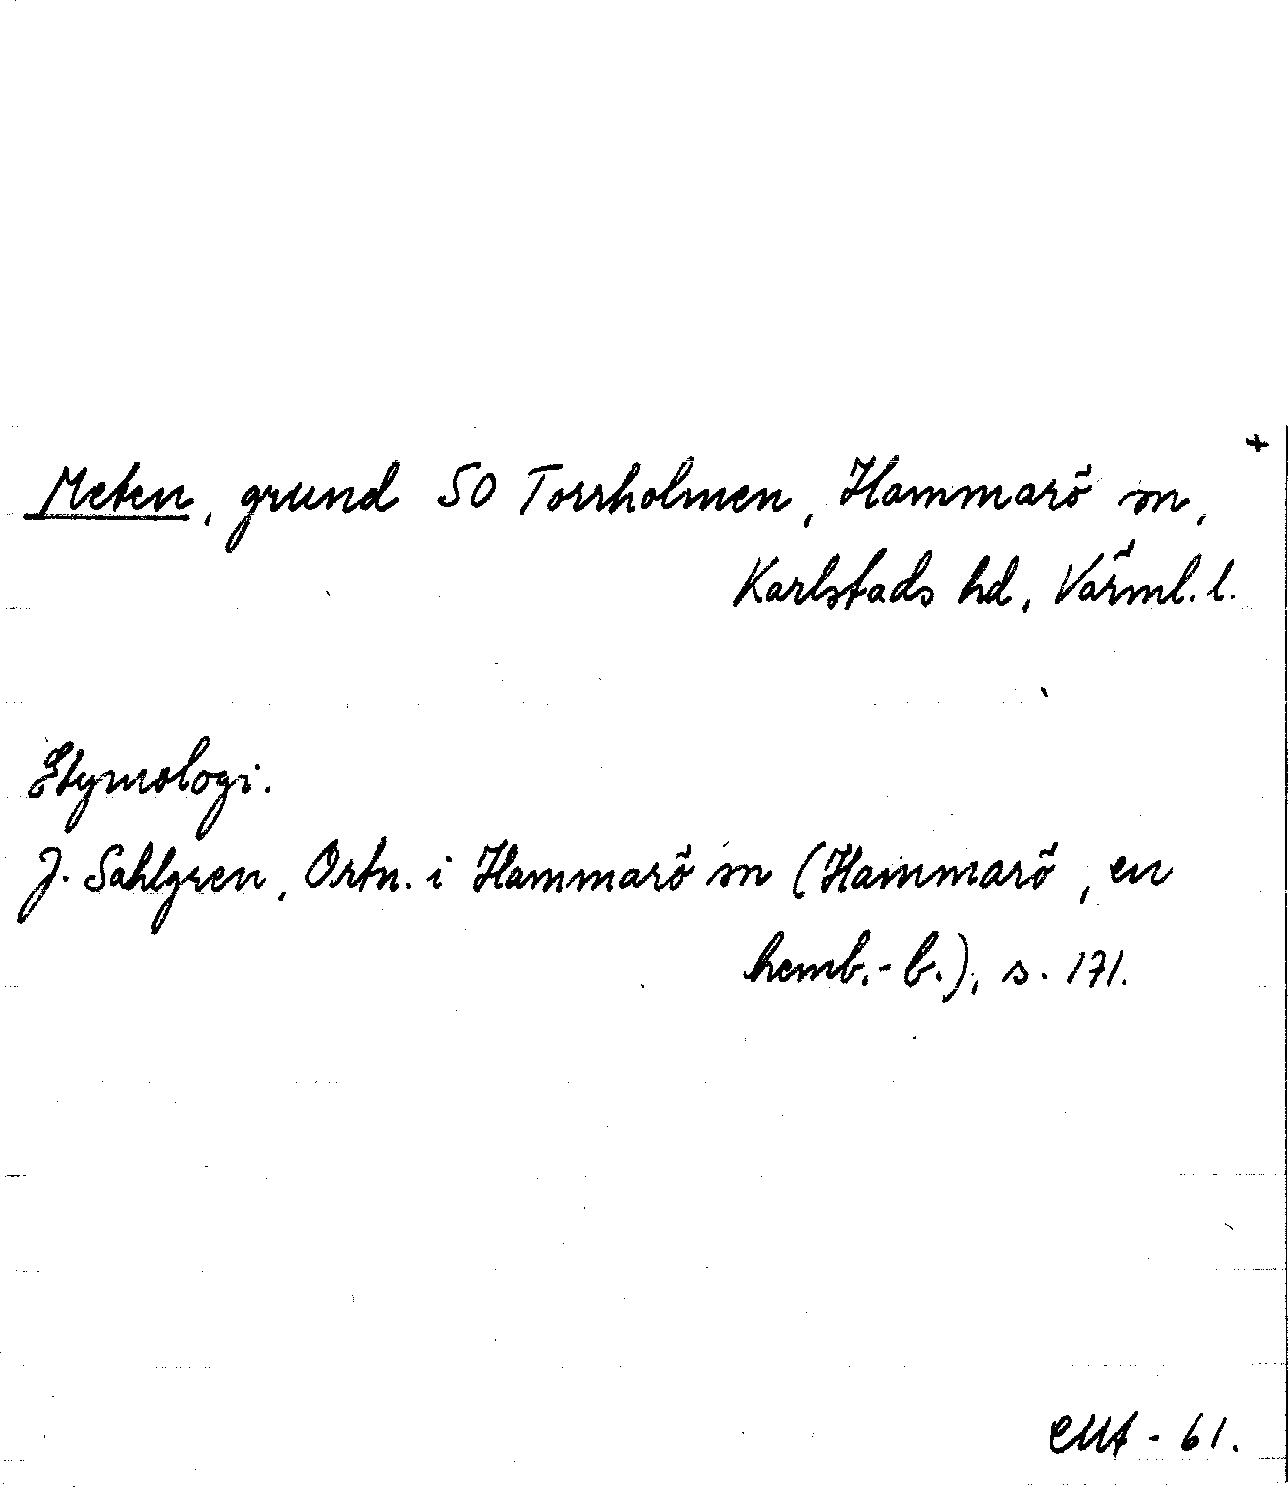 +
Meten, grund SO Torrholmen, Hammarö sn,
Karlstads hd, Värml. l.
Etymologi.
J. Sahlgren, Ortn. i Hammarö sn (Hammarö, en
hemb.-b.), s. 171.
- 61.